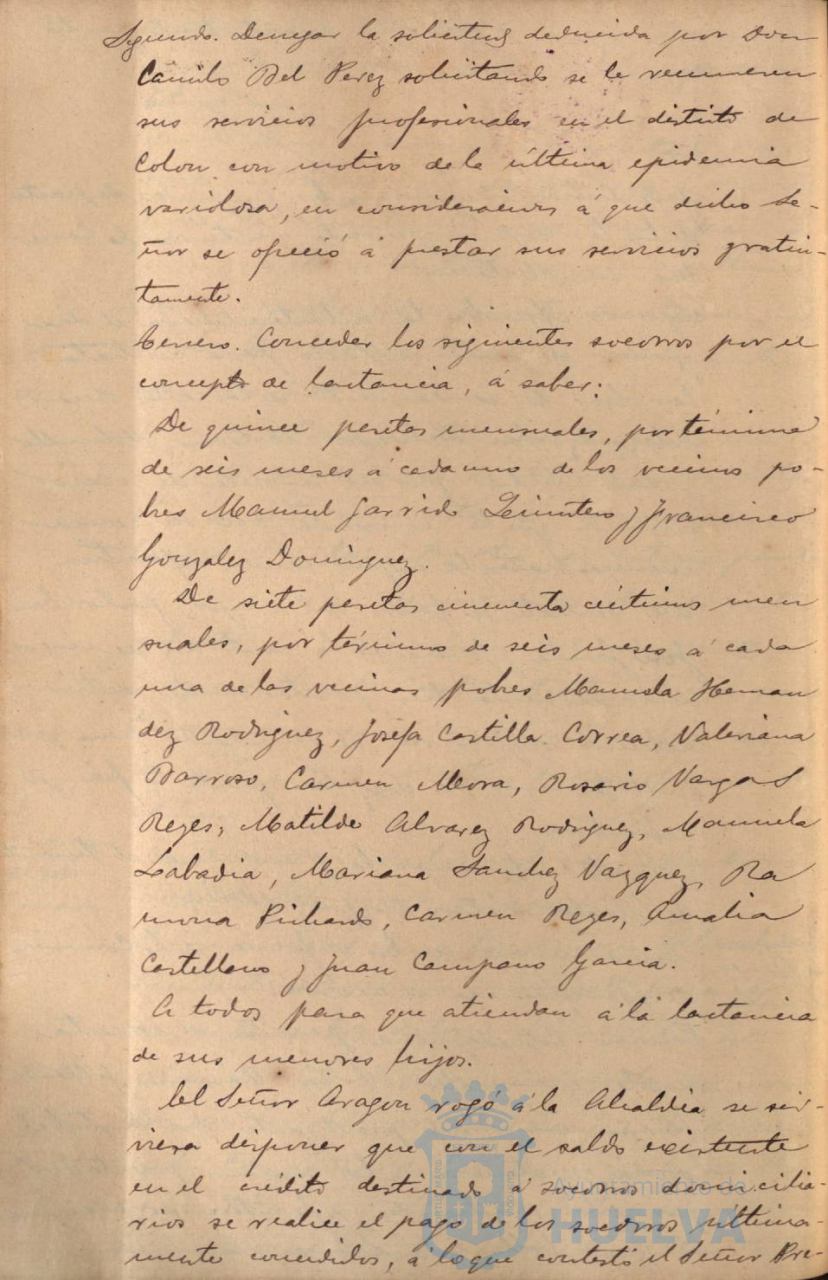 Segundo. Denegar la solicitud deducida por Don
Camilo Bel Perez solicitando se le remuneren
sus servicios profesionales en el distrito de
Colon con motivo de la última epidemia
variolosa, en consideracion á que dicho Se-
ñor se ofreció á prestar sus servicios gratui-
tamente.
Tercero. Conceder los siguientes socorros por el
concepto de lactancia, á saber:
De quince pesetas mensuales, por término
de seis meses á cada uno de los vecinos po-
bres Manuel Garrido y Francisco
Gonzalez Dominguez.
De siete pesetas cincuenta céntimos men
suales, por término de seis meses á cada
una de las vecinas pobres Manuela Hernan
dez Rodriguez, Josefa Castilla Correa, Valeriana
Barroso, Carmen Mora, Rosario Vargas
Reyes, Matilde Alvarez Rodriguez, Manuela
Labadia, Mariana Sanchez Vazquez, Ra
mona Pichardo, Carmen Reyes, Amalia
Castellano y Juan Campano Garcia.
A todos para que atiendan á la lactancia
de sus menores hijos.
El Señor Aragon rogó á la Alcaldia se sir-
viera disponer que con el saldo existente
en el crédito destinado á socorros domicilia-
rios se realice el pago de los socorros última-
mente concedidos, á lo que contestó el Señor Pre-
Ayuntamiento de
HUELVA